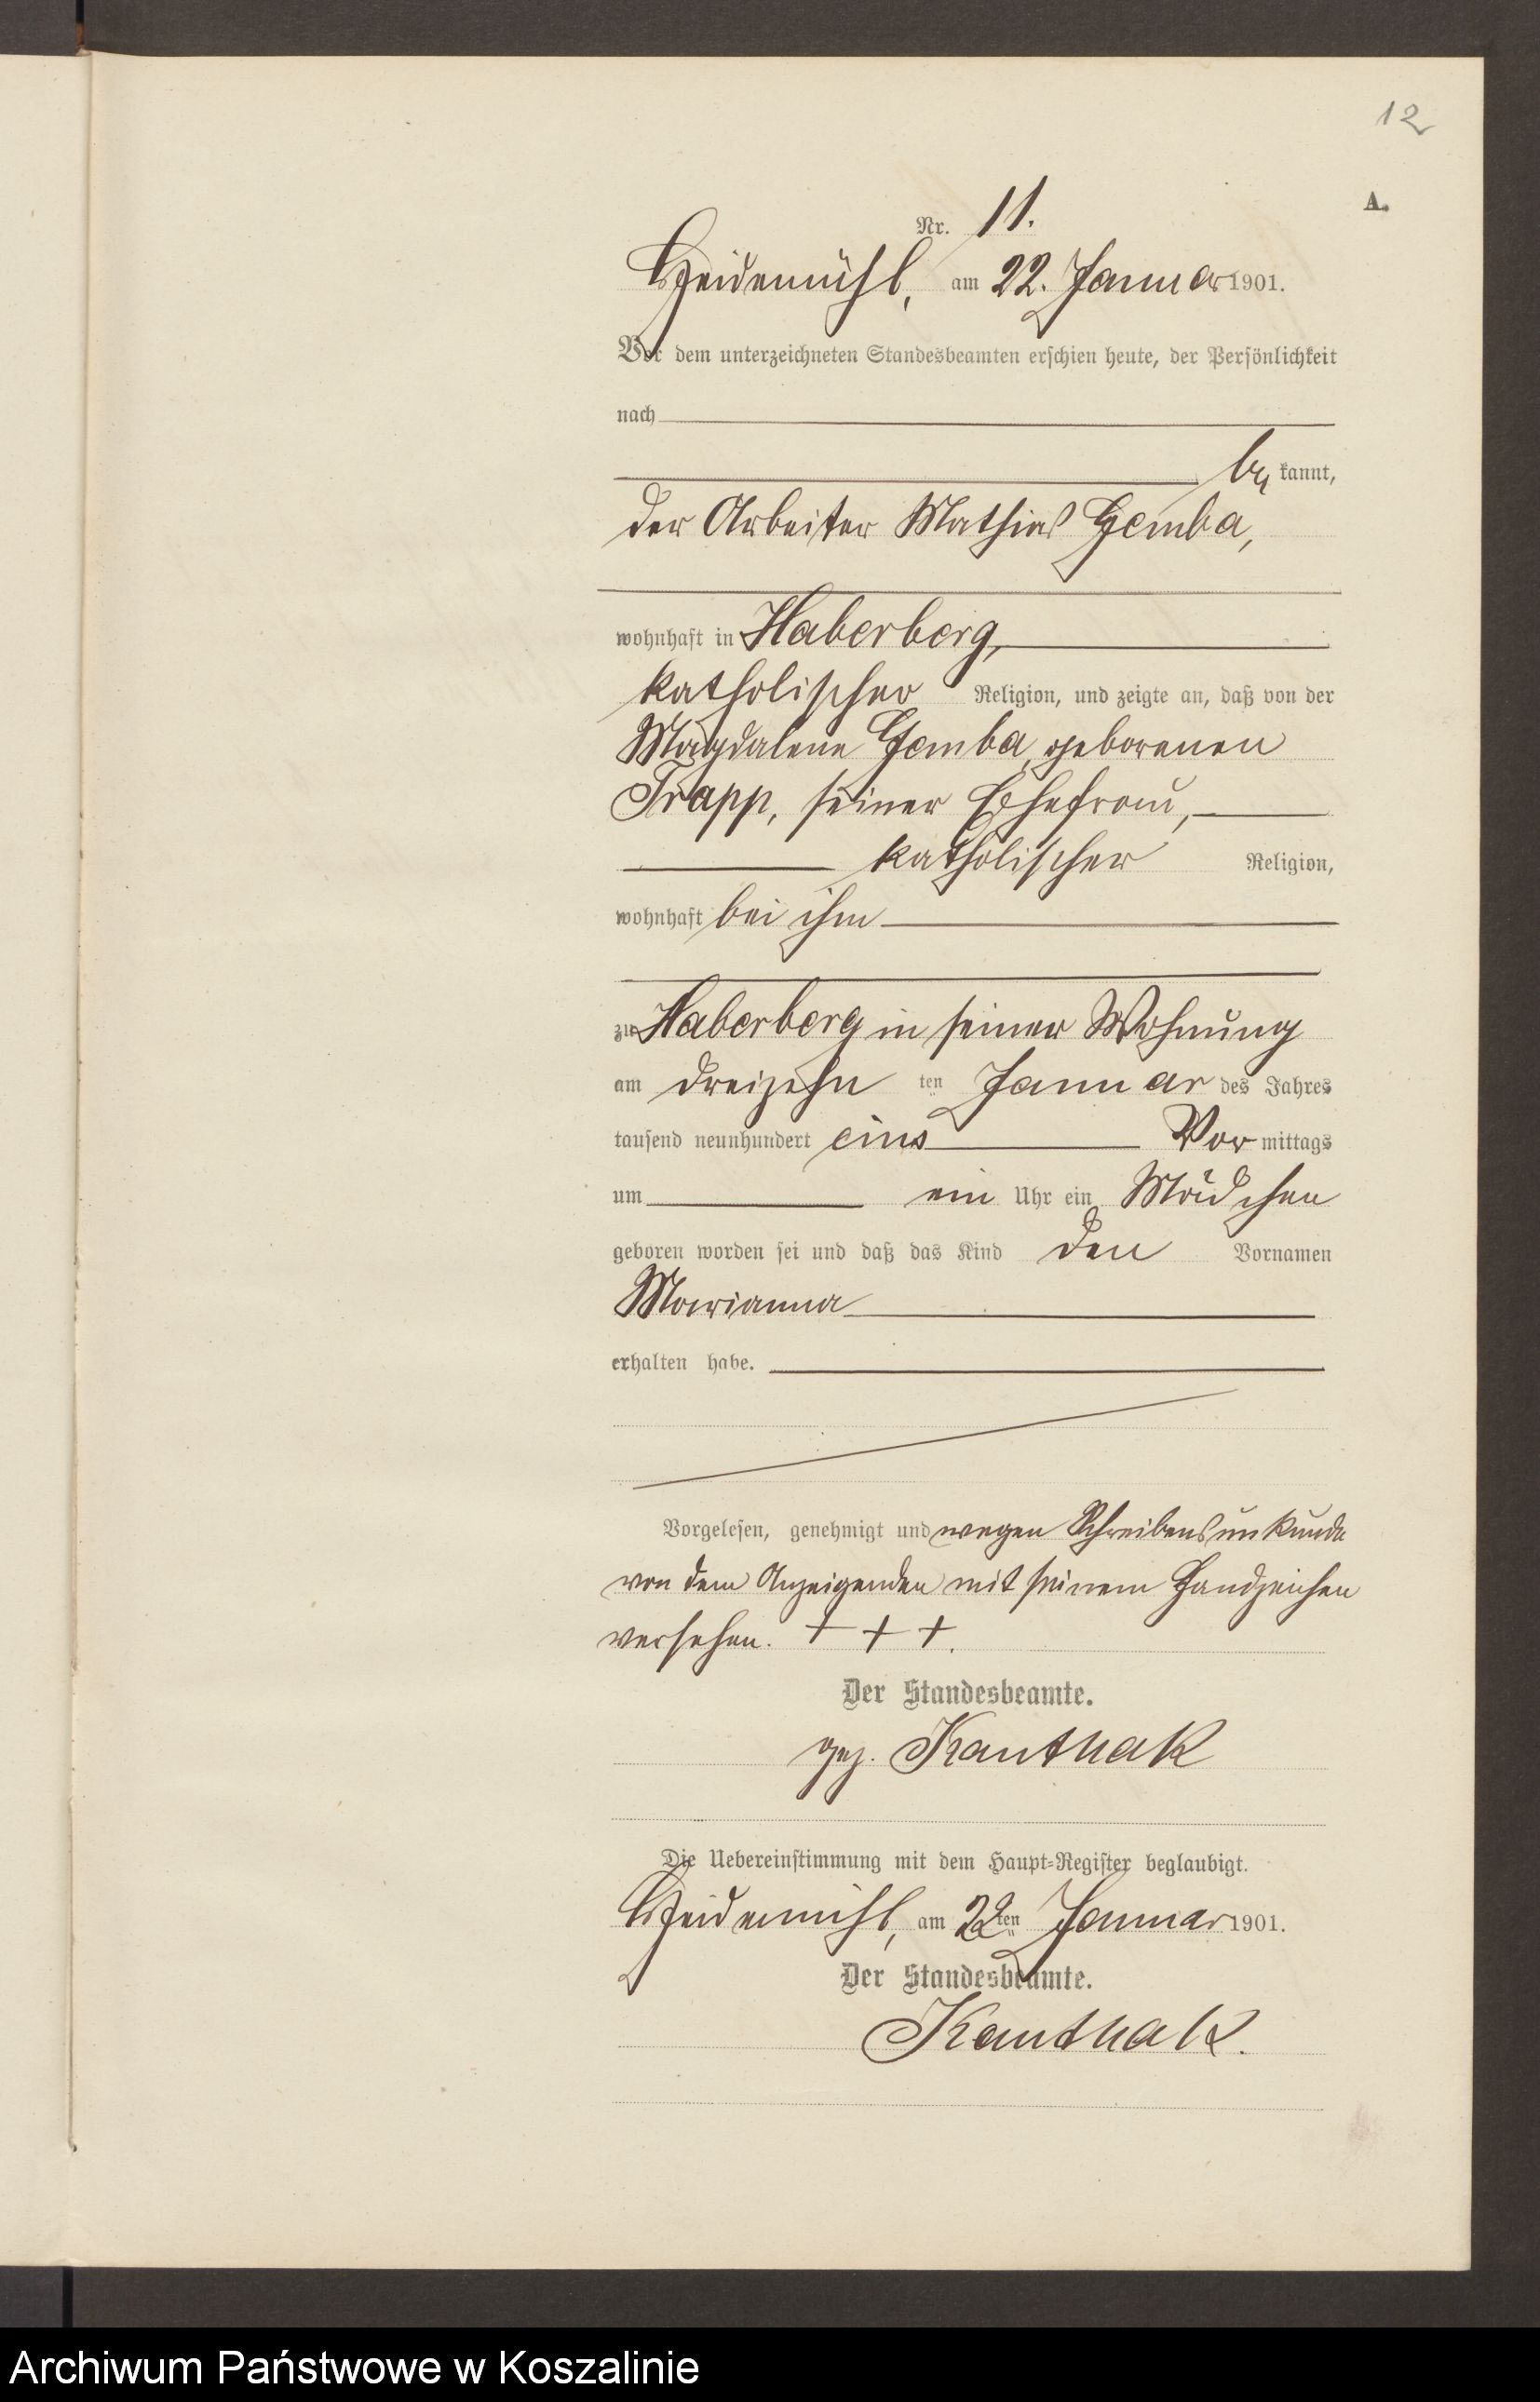 12
A.
Nr. 11.
Heidemühl, am 22. Januar 1901.
Vor dem unterzeichneten Standesbeamten erschien heute, der Persönlichkeit
nach
be kannt,
der Arbeiter Mathias Gemba,
wohnhaft in Haberberg,
katholischer Religion, und zeigte an, daß von der
Magdalene Gemba, geborenen
Trapp, seiner Ehefrau,
katholischer Religion,
wohnhaft bei ihm
zu Haberberg in seiner Wohnung
am dreizehn ten Januar des Jahres
tausend neunhundert eins Vor mittags
um ein Uhr ein Mädchen
geboren worden sei und daß das Kind den Vornamen
Marianna
erhalten habe.
Vorgelesen, genehmigt und wegen Schreibensunkunde
von dem Anzeigenden mit seinem Handzeichen
versehen. + + +.
Der Standesbeamte.
gez. Kanthak
Die Uebereinstimmung mit dem Haupt-Register beglaubigt.
Heidemühl, am 22ten Januar 1901.
Der Standesbeamte.
Kanthak.
Archiwum Państwowe w Koszalinie